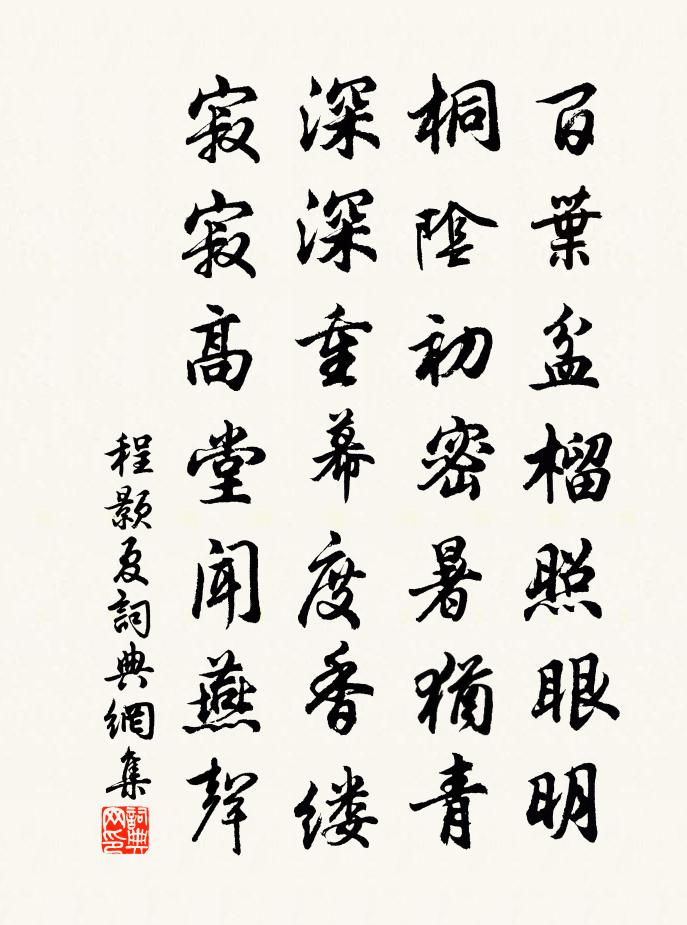 百葉盆榴照眼明
桐陰初密暑猶青
深深重幕度香缕
寂寂高堂聞燕聲
程顥夏詞典網集
詞典
网印